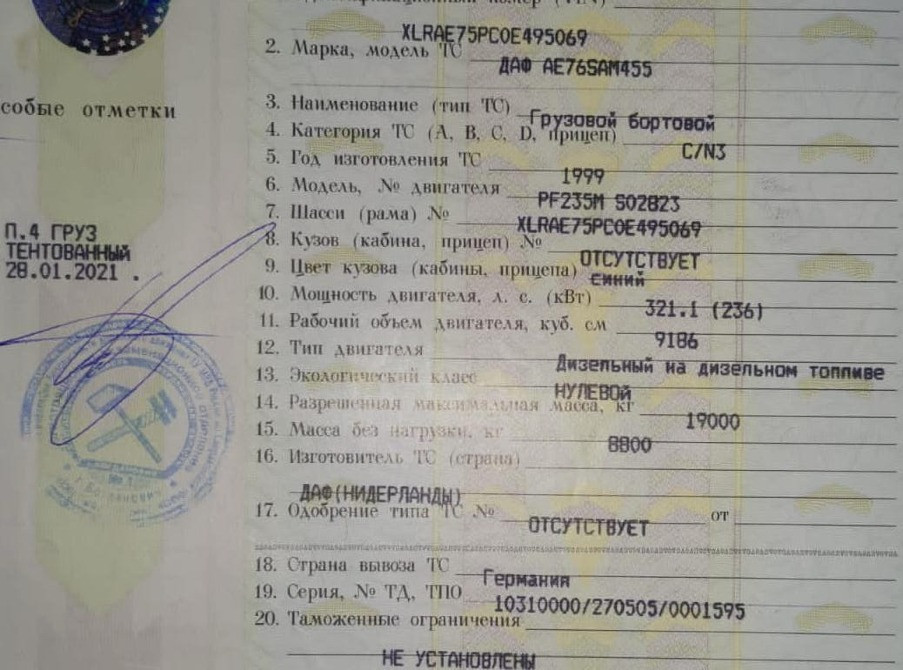 XLRAE75PC0E495069
2. Марка, модель ТС
ДАФ AE76SAM455
собые отметки
3. Наименование (тип ТС) Грузовой бортовой
4. Категория ТС (А, В, С, D, прицеп)
C/N3
5. Год изготовления ТС
1999
6. Модель, № двигателя
PF235M S02823
7. Шасси (рама) №
XLRAE75PC0E495069
П.4 ГРУЗ
ТЕНТОВАННЫЙ
28.01.2021 .
8. Кузов (кабина, прицеп) №
ОТСУТСТВУЕТ
9. Цвет кузова (кабины, прицепа)
синий
10. Мощность двигателя, л. с. (кВт)
321.1 (236)
11. Рабочий объем двигателя, куб. см
9186
12. Тип двигателя
Дизельный на дизельном топливе
13. Экологический класс
НУЛЕВОЙ
14. Разрешенная максимальная масса, кг
19000
15. Масса без нагрузки, кг
8800
16. Изготовитель ТС (страна)
ДАФ(НИДЕРЛАНДЫ)
17. Одобрение типа ТС № от
ОТСУТСТВУЕТ
18. Страна вывоза ТС
Германия
19. Серия, № ТД, ТПО
10310000/270505/0001595
20. Таможенные ограничения
НЕ УСТАНОВЛЕНЫ